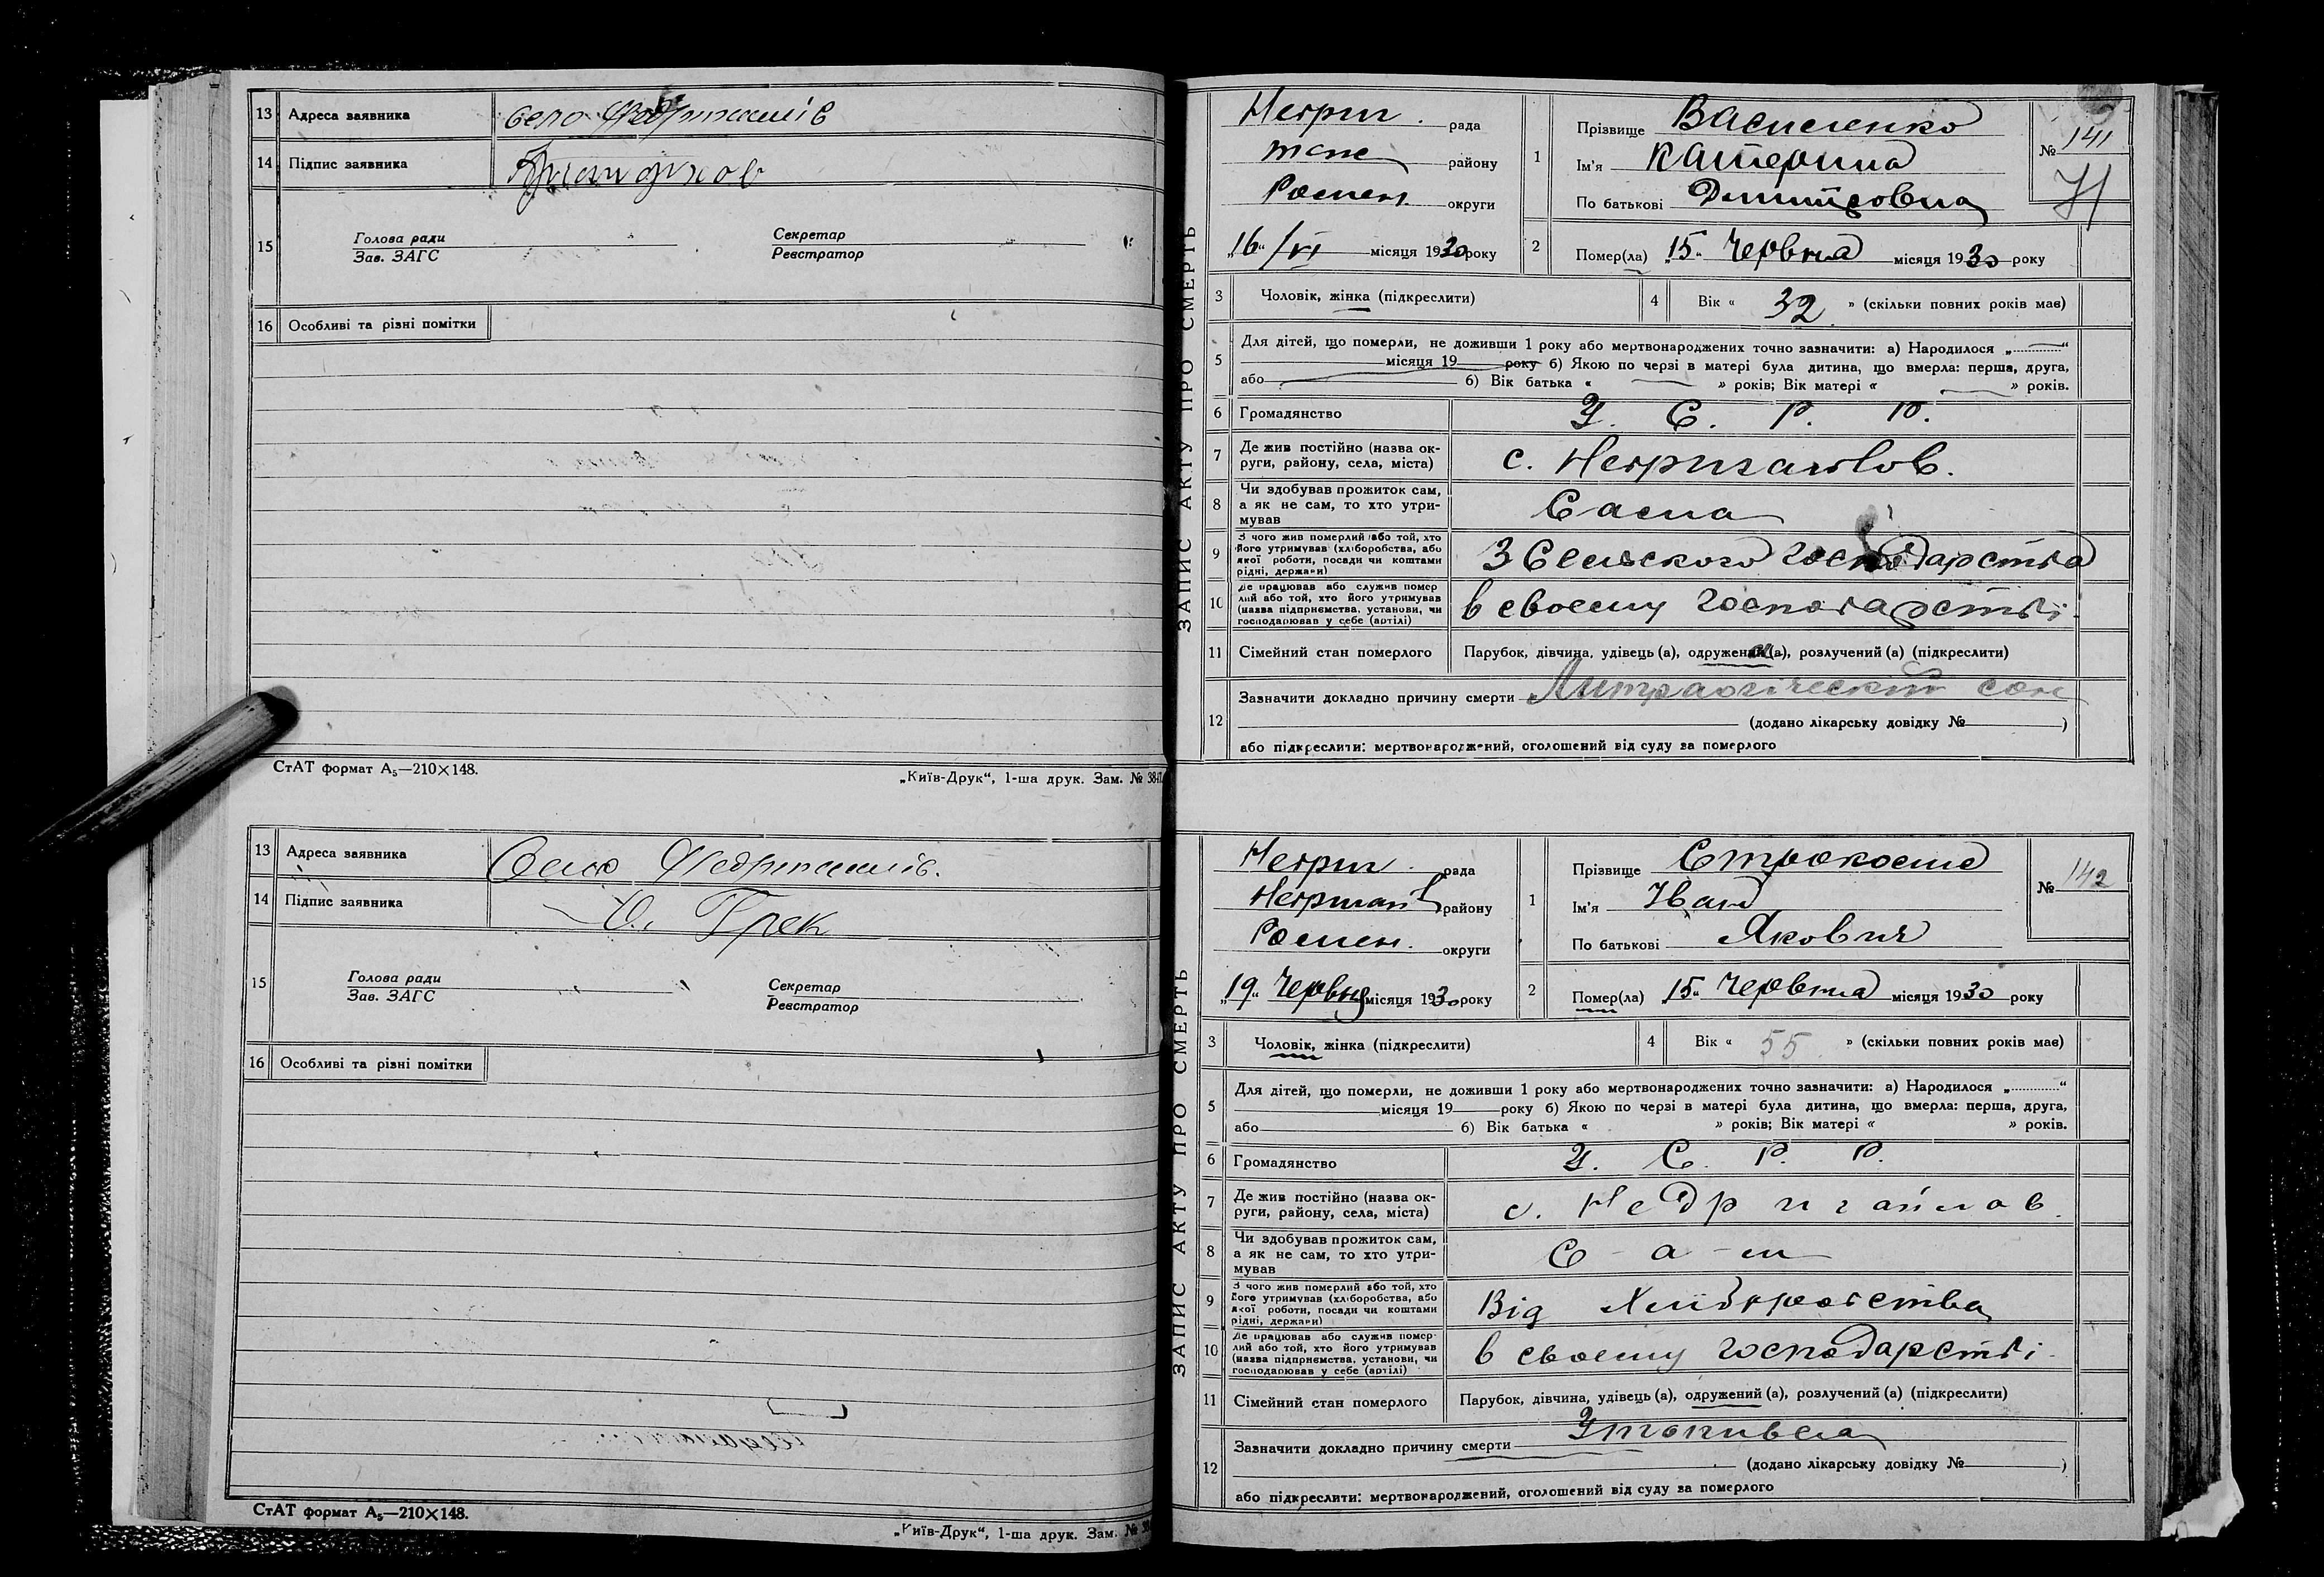 13 Адреса заявника село
14 Підпис заявника
15 Голова ради Секретар
Зав. ЗАГС Реєстратор
16 Особливі та різні помітки
СтАТ формат А₅—210×148. „Київ-Друк“, 1-ша друк. Зам. №
13 Адреса заявника Село
14 Підпис заявника Грек
15 Голова ради Секретар
Зав. ЗАГС Реєстратор
16 Особливі та різні помітки
СтАТ формат А₅—210×148.
„Київ-Друк“, 1-ша друк. Зам. №
ЗАПИС АКТУ ПРО СМЕРТЬ
Недриг. рада
району
Ромен. округи
„16“ /VI місяця 1930 року
1 Прізвище Василенко
Ім'я Катерина
По батькові Дмитровна
№ 141
2 Помер(ла) „15“ Червня місяця 1930 року
3 Чоловік, жінка (підкреслити)
4 Вік « 32 » (скільки повних років мав)
5 Для дітей, що померли, не доживши 1 року або мертвонароджених точно зазначити: а) Народилося „ “
місяця 19 року б) Якою по черзі в матері була дитина, що вмерла: перша, друга,
або б) Вік батька « » років; Вік матері « » років.
6 Громадянство У. С. Р. Р.
7 Де жив постійно (назва ок-
руги, району, села, міста) с. Недригайлов.
8 Чи здобував прожиток сам,
а як не сам, то хто утри-
мував Сама
9 З чого жив померлий або той, хто
його утримував (хліборобства, або
якої роботи, посади чи коштами
рідні, держави) З Сельского господарства
10 Де працював або служив помер-
лий або той, хто його утримував
(назва підприємства, установи, чи
господарював у себе (артілі) в своему господарстві.
11 Сімейний стан померлого Парубок, дівчина, удівець (а), одружений (а), розлучений (а) (підкреслити)
12 Зазначити докладно причину смерти Литраогіческий сон
(додано лікарську довідку № )
або підкреслити: мертвонароджений, оголошений від суду за померлого
ЗАПИС АКТУ ПРО СМЕРТЬ
Недриг. рада
району
Ромен. округи
„19“ Червня місяця 1930 року
1 Прізвище Строкоста
Ім'я Іван
По батькові Якович
№ 142
2 Помер(ла) „15“ Червня місяця 1930 року
3 Чоловік, жінка (підкреслити)
4 Вік « 55 » (скільки повних років мав)
5 Для дітей, що померли, не доживши 1 року або мертвонароджених точно зазначити: а) Народилося „ “
місяця 19 року б) Якою по черзі в матері була дитина, що вмерла: перша, друга,
або б) Вік батька « » років; Вік матері « » років.
6 Громадянство У. С. Р. Р.
7 Де жив постійно (назва ок-
руги, району, села, міста) с. Недригайлов.
8 Чи здобував прожиток сам,
а як не сам, то хто утри-
мував С-а-м
9 З чого жив померлий або той, хто
його утримував (хліборобства, або
якої роботи, посади чи коштами
рідні, держави) Від
10 Де працював або служив помер-
лий або той, хто його утримував
(назва підприємства, установи, чи
господарював у себе (артілі) в своему господарстві.
11 Сімейний стан померлого Парубок, дівчина, удівець (а), одружений (а), розлучений (а) (підкреслити)
12 Зазначити докладно причину смерти Утопився
(додано лікарську довідку № )
або підкреслити: мертвонароджений, оголошений від суду за померлого